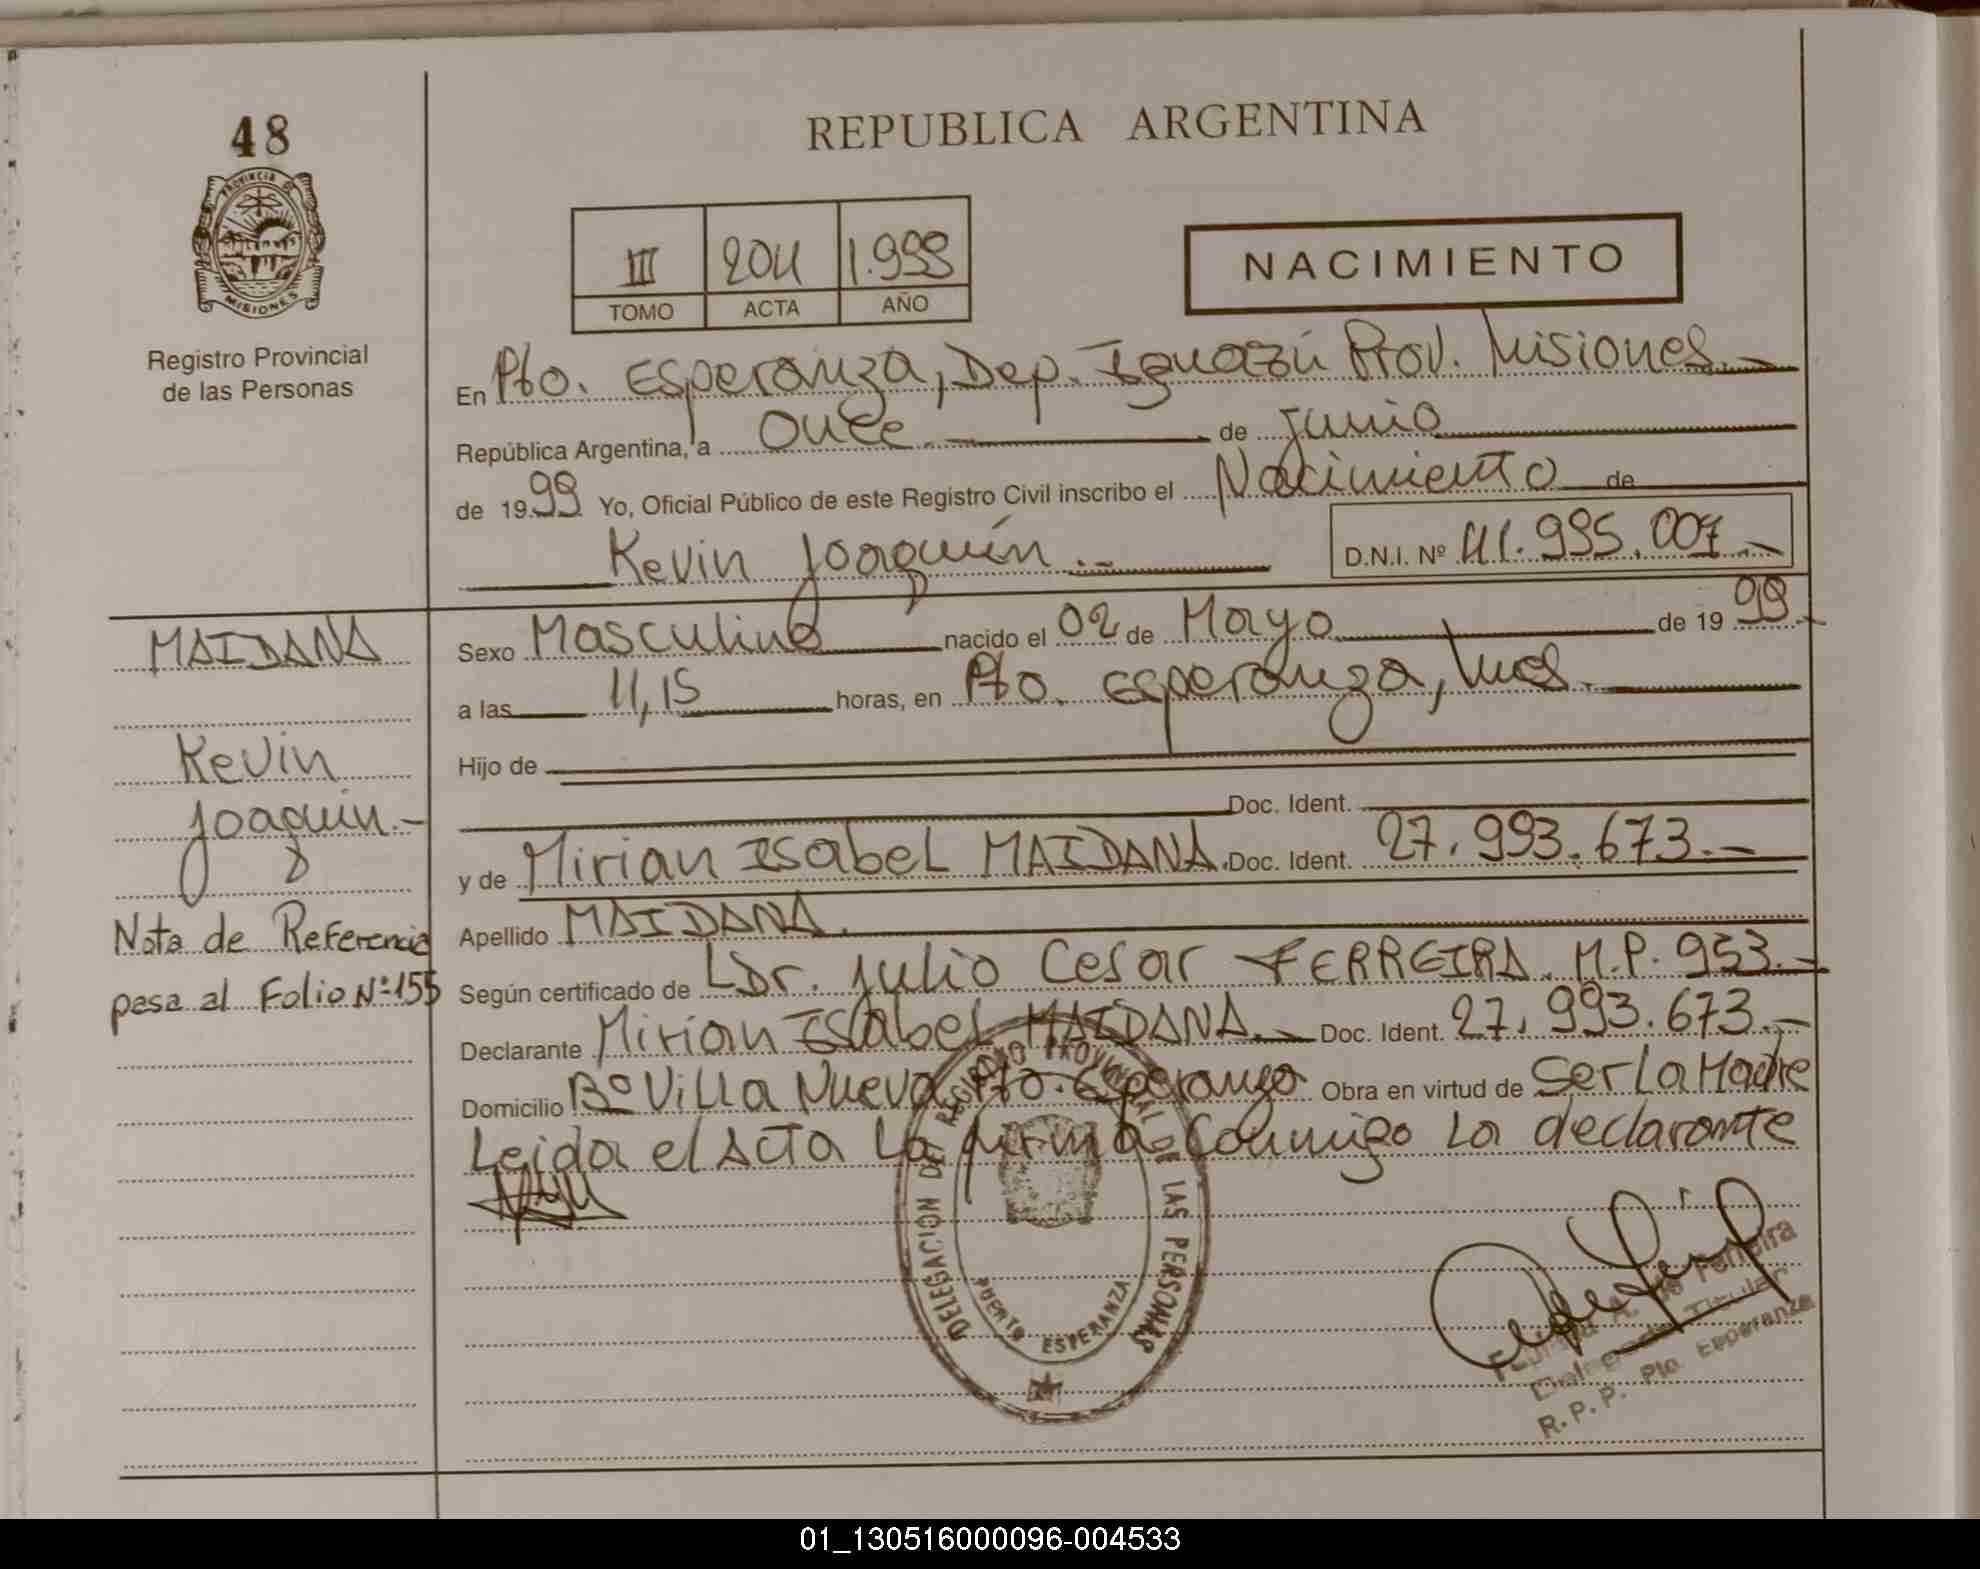 48
PROVINCIA DE
MISIONES
Registro Provincial
de las Personas
REPUBLICA ARGENTINA
III 204 1.999
TOMO ACTA AÑO
NACIMIENTO
En Pto. Esperanza, Dep. Iguazú Prov. Misiones.-
República Argentina, a Once de junio
de 1999 Yo, Oficial Público de este Registro Civil inscribo el Nacimiento de
Kevin Joaquín.-
D.N.I. Nº 41.995.007.-
MAIDANA
Kevin
Joaquin.-
Nota de Referencia
pasa al Folio Nº:155
Sexo Masculino nacido el 02 de Mayo de 1999.-
a las 11,15 horas, en Pto. Esperanza, Mnes.
Hijo de
Doc. Ident.
y de Mirian Isabel MAIDANA. Doc. Ident. 27.993.673.-
Apellido MAIDANA.
Según certificado de Dr. Julio Cesar FERREIRA. M.P. 953.-
Declarante Mirian Isabel MAIDANA.- Doc. Ident. 27.993.673.-
Domicilio Bº Villa Nueva Pto. Esperanza Obra en virtud de Ser La Madre
Leida el Acta La firma Conmigo La declarante
DELEGACION DEL REGISTRO PROVINCIAL DE LAS PERSONAS
PUERTO ESPERANZA
Ferreira
Titular
R.P.P. Pto. Esperanza
01_130516000096-004533